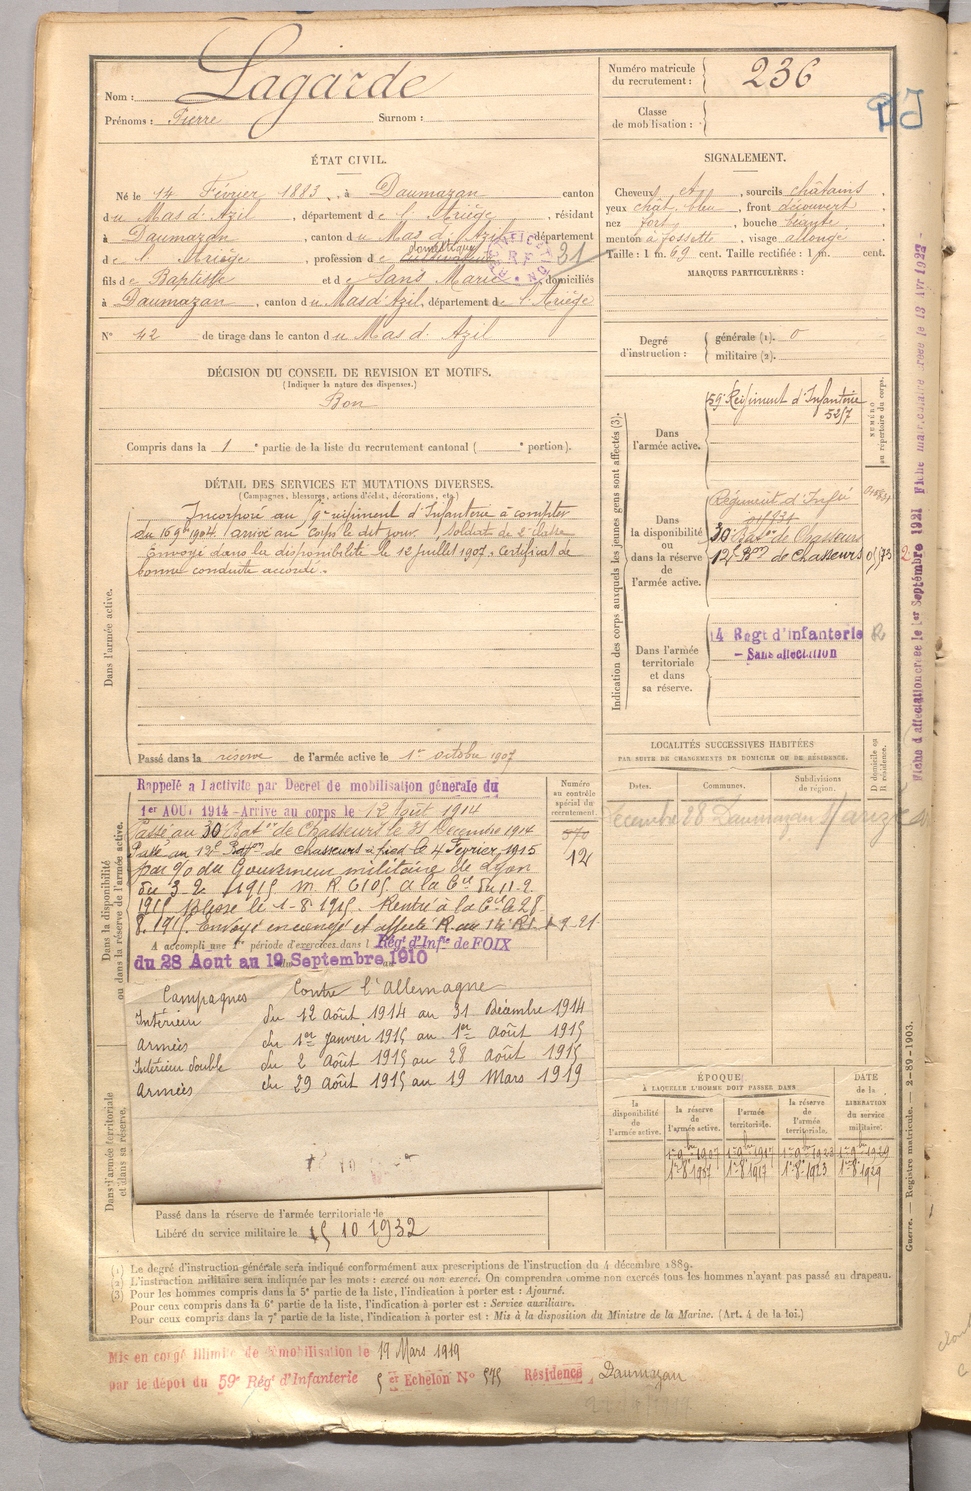 Nom : Lagarde
Prénoms : Pierre Surnom :
Numéro matricule
du recrutement : 236
Classe
de mobilisation :
ÉTAT CIVIL.
Né le 14 Février 1883, à Daumazan canton
du Mas d'Azil, département de l'Ariège, résidant
à Daumazan, canton du Mas d'Azil, département
de l'Ariège, profession de domestique
fils de Baptiste et de Sans Marie, domiciliés
à Daumazan, canton du Mas d'Azil, département de l'Ariège
31
N° 42 de tirage dans le canton du Mas d'Azil
SIGNALEMENT.
Cheveux et, sourcils châtains,
yeux chât. bleu, front découvert
nez fort, bouche béante,
menton à fossette, visage allongé
Taille : 1 m. 69 cent. Taille rectifiée : 1 m. cent.
MARQUES PARTICULIÈRES :
Degré
d'instruction :
générale (1). 0
militaire (2).
DÉCISION DU CONSEIL DE REVISION ET MOTIFS.
(Indiquer la nature des dispenses.)
Bon
Compris dans la 1e partie de la liste du recrutement cantonal ( e portion).
DÉTAIL DES SERVICES ET MUTATIONS DIVERSES.
(Campagnes, blessures, actions d'éclat, décorations, etc.)
Dans l'armée active.
Incorporé au 9e régiment d'Infanterie à compter
du 16 9bre 1904. arrivé au Corps le dit jour. soldat de 2e classe
Envoyé dans la disponibilité le 12 juillet 1907. Certificat de
bonne conduite accordé.
Passé dans la réserve de l'armée active le 1er octobre 1907
Indication des corps auxquels les jeunes gens sont affectés (3).
NUMÉRO
au répertoire du corps.
Dans
l'armée active.
59e Régiment d'Infanterie
52/7
Dans
la disponibilité
ou
dans la réserve
de
l'armée active.
Régiment d'Infrie
01/931
30 Baton de Chasseurs
12e Bon de Chasseurs
Dans l'armée
territoriale
et dans
sa réserve.
14 Régt d'Infanterie
- Sans affectation
R
LOCALITÉS SUCCESSIVES HABITÉES
PAR SUITE DE CHANGEMENTS DE DOMICILE OU DE RÉSIDENCE.
Dates.
Communes.
Subdivisions
de région.
D domicile ou
R résidence.
Décembre 28 Daumazan s/ arize
Dans la disponibilité
ou dans la réserve de l'armée active.
Numéro
au contrôle
spécial du
recrutement.
12
Rappelé à l'activité par Decret de mobilisation générale du
1er AOUt 1914 - Arrivé au corps le 12 Août 1914
Passé au 30 Baton de Chasseurs le 31 Décembre 1914
Passé au 12e Baton de chasseurs à pied le 4 Février 1915
par % du Gouverneur militaire de Lyon
du 3-2-1915 M. R. 6105 à la Cie du 11-2-
1915 Blessé le 1-8-1915. Rentré à la Cie le 28
8.1915. Envoyé en congé et affecté R. au 14e RI
A accompli une 1e période d'exercices dans l Régt d'Infie de FOIX
du 28 Aout au 19 Septembre 1910
Campagnes Contre l'Allemagne
Intérieur du 12 Août 1914 au 31 Décembre 1914
Armées du 1er Janvier 1915 au 1er Août 1915
Intérieur double du 2 Août 1915 au 28 Août 1915
Armées du 29 Août 1915 au 19 Mars 1919
Dans l'armée territoriale
et dans sa réserve.
Passé dans la réserve de l'armée territoriale le
Libéré du service militaire le 15 10 1932
ÉPOQUE
À LAQUELLE L'HOMME DOIT PASSER DANS
la
disponibilité
de
l'armée active.
la réserve
de
l'armée active.
l'armée
territoriale.
la réserve
de
l'armée
territoriale.
DATE
de la
LIBÉRATION
du service
militaire.
1er 9bre 1907 1er 9bre 1917 1er 9bre 1923 1er 9bre 1929
1er 8 1907 1er 8 1917 1er 8 1923 1er 8 1929
(1) Le degré d'instruction générale sera indiqué conformément aux prescriptions de l'instruction du 4 décembre 1889.
(2) L'instruction militaire sera indiquée par les mots : exercé ou non exercé. On comprendra comme non exercés tous les hommes n'ayant pas passé au drapeau.
(3) Pour les hommes compris dans la 5e partie de la liste, l'indication à porter est : Ajourné.
Pour ceux compris dans la 6e partie de la liste, l'indication à porter est : Service auxiliaire.
Pour ceux compris dans la 7e partie de la liste, l'indication à porter est : Mis à la disposition du Ministre de la Marine. (Art. 4 de la loi.)
Mis en congé illimité de démobilisation le 19 Mars 1919
par le dépot du 59e Régt d'Infanterie 5 er Echelon No 575 Résidence Daumazan
Fiche d'affectation créée le 1er Septembre 1921 Fiche matriculaire créée le 13 Avr 1922 -
Guerre. — Registre matricule. — 2-89-1903.